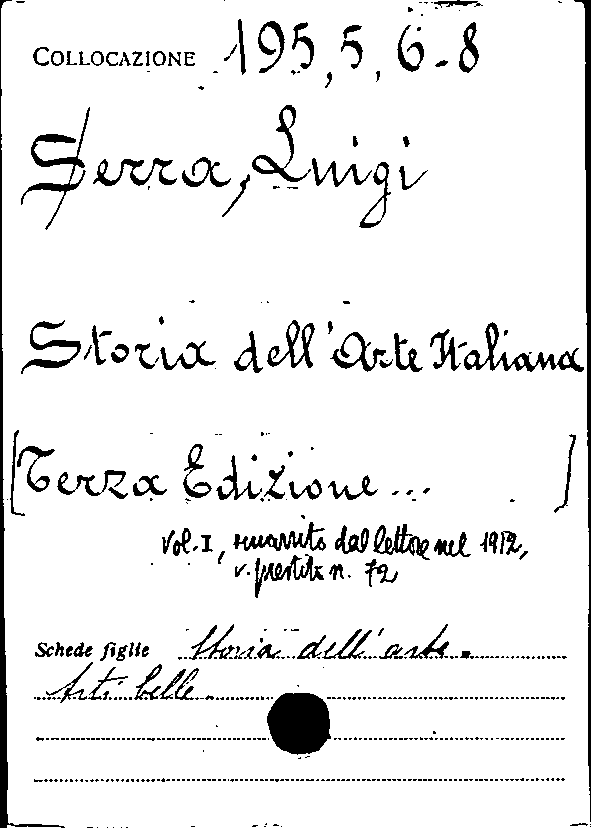 COLLOCAZIONE 195,5,6-8
Serra, Luigi
Storia dell'Arte Italiana
[Terza Edizione... ]
Vol. I, smarrito dal lettore nel 1912,
v. prestito n. 72
Schede figlie Storia dell'arte.
Arti belle.